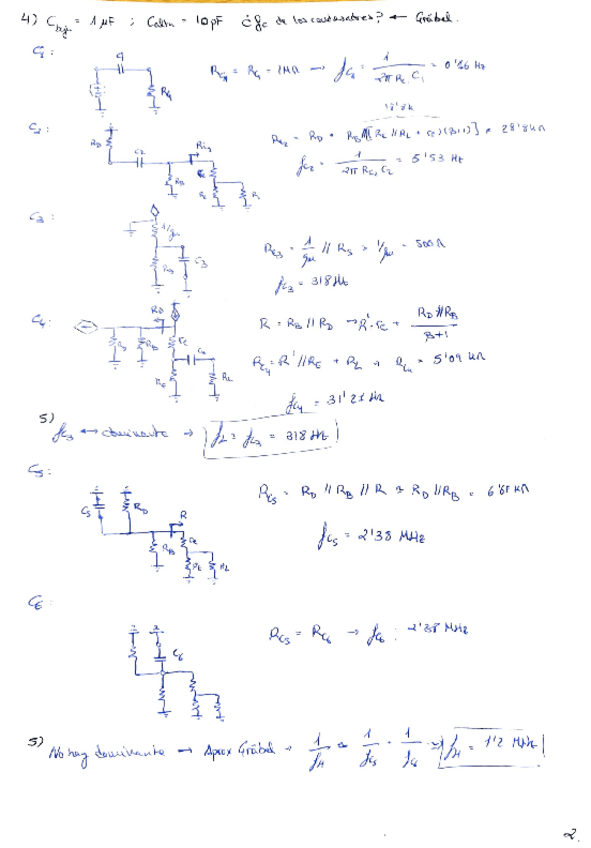 4) C baja = 1 µF ; C alta = 10 pF ¿fc de los condensadores? ← Gräbel.
C1:
C1 RG
RC1 = RG = 1MΩ → fC1 = 1 / 2π RC1 C1 = 0'16 Hz
18'8k
C2:
RD C2 RB RE RL
RC2 = RD + RB // [(RE // RL + re)(β+1)] = 28'8 kΩ
fC2 = 1 / 2π RC2 C2 = 5'53 Hz
C3:
1/gm RS C3
RC3 = 1/gm // RS ≈ 1/gm = 500 Ω
fC3 = 318 Hz
C4:
RD RB re C4 RE RL
R = RB // RD → R' = re + RD // RB / β+1
RC4 = R' // RE + RL → RC4 = 5'09 kΩ
fC4 = 31'21 Hz
5)
fC3 ↔ dominante → fL = fC3 = 318 Hz
C5:
C5 RD R RB re RE RL
RC5 = RD // RB // R ≈ RD // RB = 6'68 kΩ
fC5 = 2'38 MHz
C6:
C6
RC5 = RC6 → fC6 : 2'38 MHz
5) No hay dominante → Aprox Gräbel → 1/fH ≈ 1/fC5 + 1/fC6 ⇒ fH = 1'2 MHz
2.